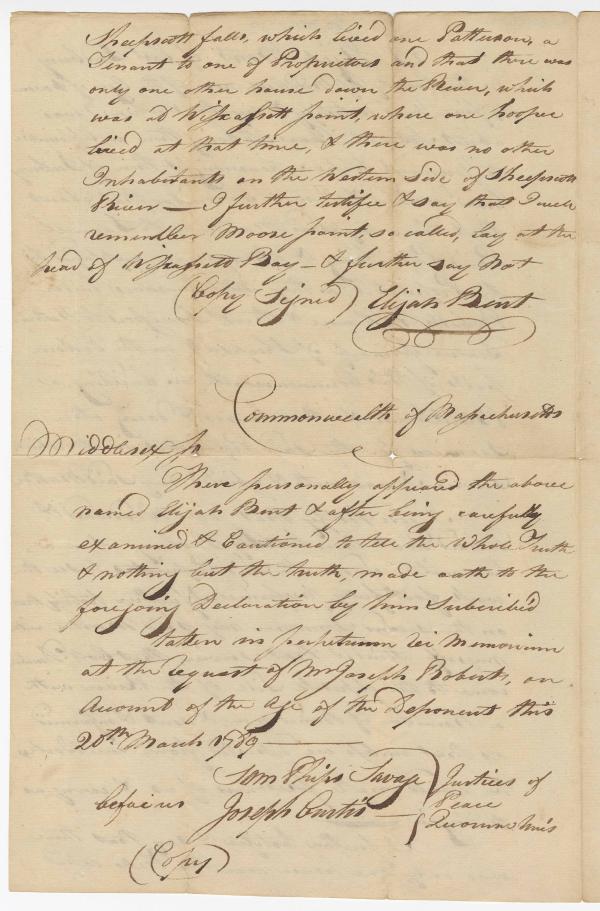 Sheepscott falls, which lived one Patterson, a
Tenant to one of Proprietors and that there was
only one other house down the River, which
was at Wiscassett point, where one hooper
lived at that time, & there was no other
Inhabitants on the Western side of Sheepscott
River — I further testifie & say that I well
remember Moose point, so called, lay at the
head of Wiscassett Bay — & further say Not
(Copy Signed) Elijah Bent
Commonwealth of Massachusetts
Middlesex ss
There personally appeared the above
named Elijah Bent & after being carefully
examined & Cautioned to tell the Whole Truth
& nothing but the truth, made oath to the
foregoing Declaration by him Subscrib'd
taken in perpetuam rei Memoriam
at the request of Mr Joseph Roberts, on
Account of the Age of the Deponent this
20th March 1789 —
Sam Phips Savage } Justices of
before us Joseph Curtis — } Peace
Quorum Unis
(Copy)